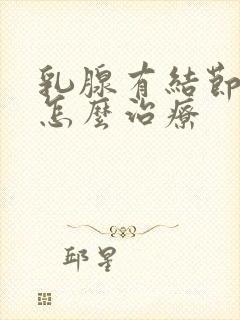 乳腺有結節
怎麼治療
邱星